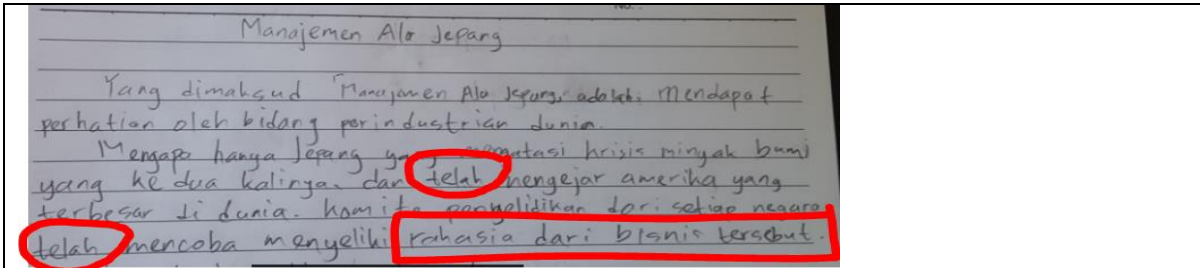 No.:
Manajemen Ala Jepang
Yang dimaksud "Manajemen Ala Jepang, adalah, Mendapat
perhatian oleh bidang perindustrian dunia.
Mengapa hanya Jepang yang mengatasi krisis minyak bumi
yang ke dua kalinya. dan telah mengejar amerika yang
terbesar di dunia. komite penyelidikan dari setiap negara
telah mencoba menyeliki rahasia dari bisnis tersebut.